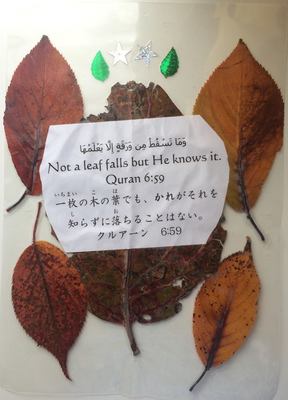 وَمَا تَسْقُطُ مِن وَرَقَةٍ إِلَّا يَعْلَمُهَا
Not a leaf falls but He knows it.
Quran 6:59
いちまい こ は
一枚の木の葉でも、かれがそれを
し お
知らずに落ちることはない。
クルアーン 6:59